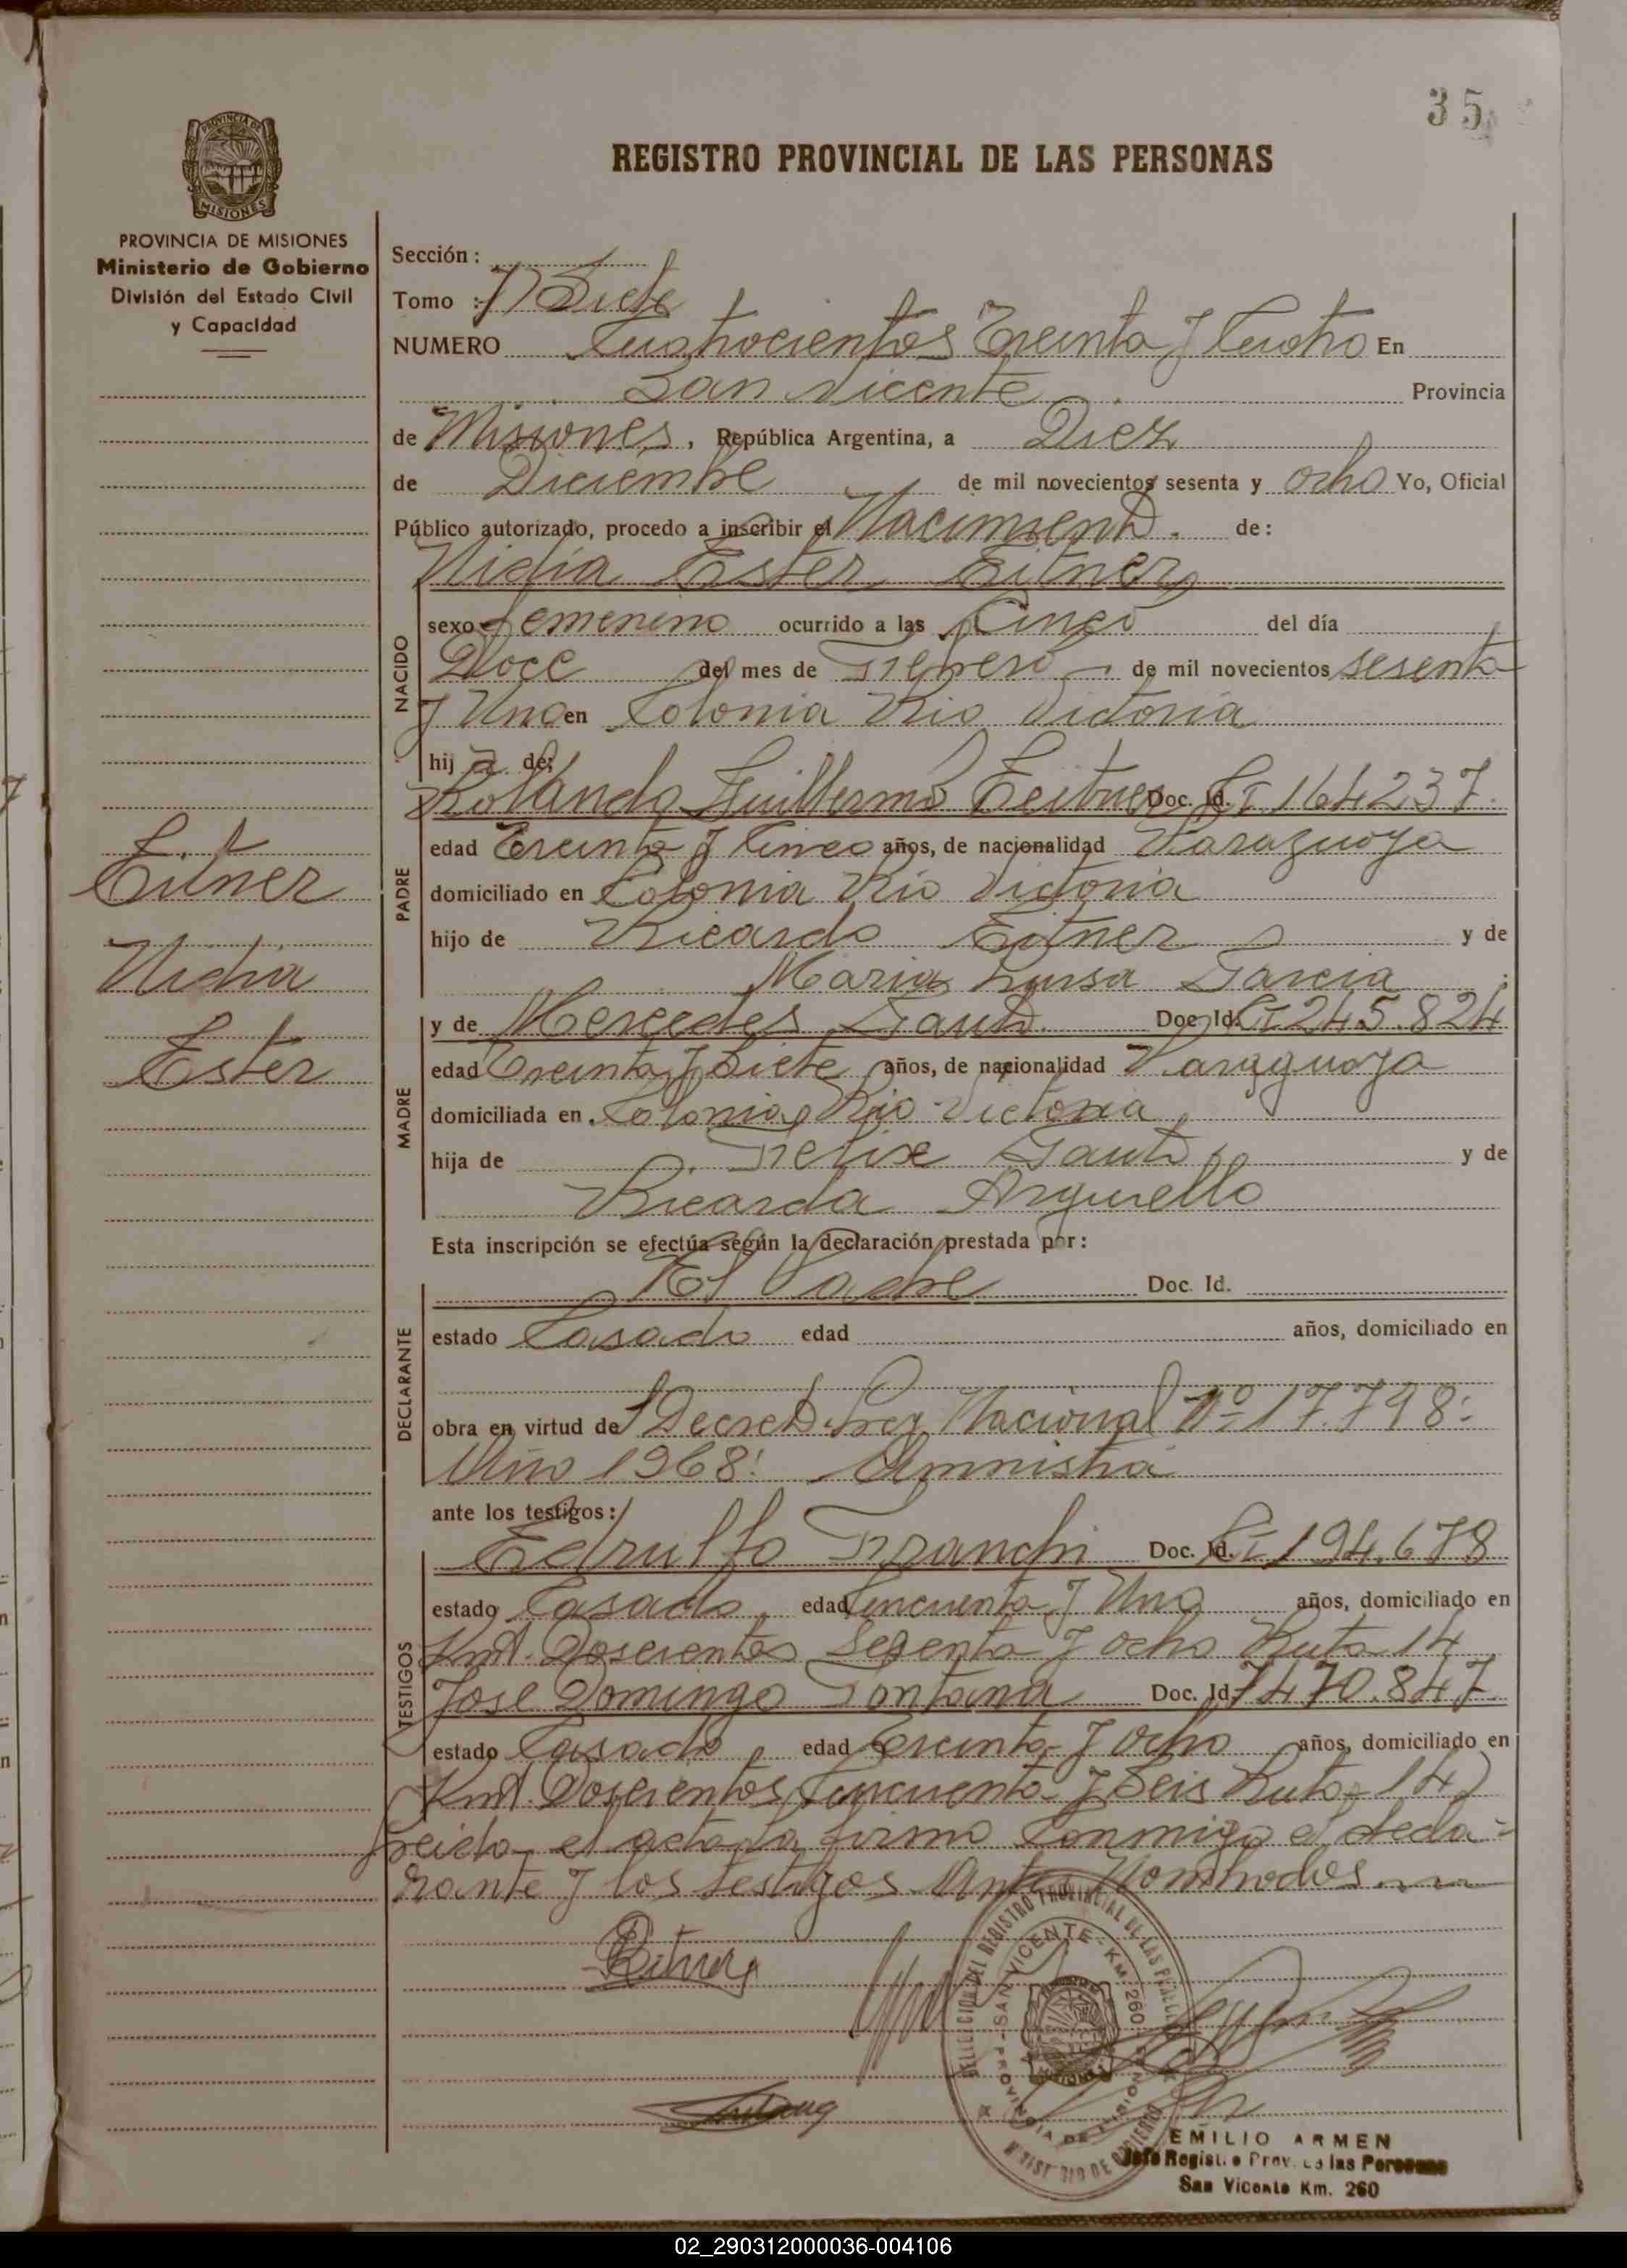 35
REGISTRO PROVINCIAL DE LAS PERSONAS
PROVINCIA DE MISIONES
Ministerio de Gobierno
División del Estado Civil
y Capacidad
Sección :
Tomo : Siete
NUMERO Cuatrocientos Treinta y Cuatro En
San Vicente Provincia
de Misiones, República Argentina, a Diez
de Diciembre de mil novecientos sesenta y ocho Yo, Oficial
Público autorizado, procedo a inscribir el Nacimiento de:
Nidia Ester Eitner
NACIDO
sexo femenino ocurrido a las Cinco del día
Doce del mes de Febrero de mil novecientos sesenta
y Uno en Colonia Rio Victoria
hij a de:
Rolando Guillermo Eeitner Doc. Id. CI 164237.
PADRE
edad Treinta y Cinco años, de nacionalidad Paraguaya
domiciliado en Colonia Rio Victoria
hijo de Ricardo Eitner y de
Maria Luisa Garcia ;
MADRE
y de Mercedes Gauto. Doc. Id. CI 245.824
edad Treinta y Siete años, de nacionalidad Paraguaya
domiciliada en Colonia Rio Victoria
hija de Felix Gauto y de
Ricarda Arguello
Esta inscripción se efectúa según la declaración prestada por:
El Padre Doc. Id.
DECLARANTE
estado Casado edad años, domiciliado en
obra en virtud del Decreto Ley Nacional Nº 17.798:
Año 1968: Amnistia
ante los testigos:
Edrulfo Franchi Doc. Id. CI 194.678
TESTIGOS
estado Casado edad Cincuenta y Uno años, domiciliado en
Kmt. Doscientos Sesenta y ocho Ruta 14
Jose Domingo Fontana Doc. Id. 7470.847
estado Casado edad Treinta y Ocho años, domiciliado en
Kmt. Doscientos Cincuenta y Seis Ruta 14
Leida el acta la firma Conmigo el decla-
rante y los testigos Ante Nombrados
Eitner
Nidia
Ester
Eitner
Fontana
SAN VICENTE - KM. 260
PROVINCIA DE MISIONES
EMILIO ARMEN
Jefe Registro Prov. de las Personas
San Vicente Km. 260
02_290312000036-004106